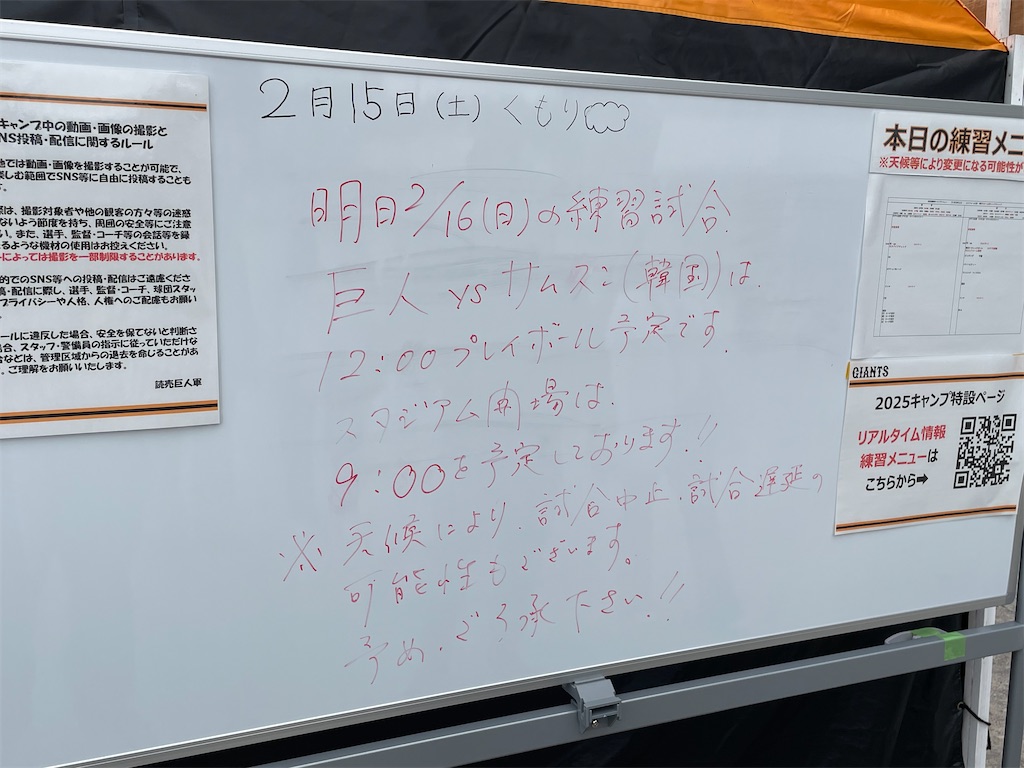 2月15日(土)くもり
明日2/16(日)の練習試合
巨人 vs サムスン(韓国)は、
12:00プレイボール予定です。
スタジアム開場は、
9:00を予定しております!!
※天候により、試合中止、試合遅延の
可能性もございます。
予め、ご了承下さい!!
キャンプ中の動画・画像の撮影と
NS投稿・配信に関するルール
地では動画・画像を撮影することが可能で、
楽しむ範囲でSNS等に自由に投稿することも
す。
際は、撮影対象者や他の観客の方々等の迷惑
ないよう節度を持ち、周囲の安全等にご注意
い。また、選手、監督・コーチ等の会話等を録
るような機材の使用はお控えください。
によっては撮影を一部制限することがあります。
的でのSNS等への投稿・配信はご遠慮くださ
稿・配信に際し、選手、監督・コーチ、球団スタッ
プライバシーや人格、人権へのご配慮もお願い
ールに違反した場合、安全を保てないと判断さ
場合、スタッフ・警備員の指示に従っていただけな
合などは、管理区域からの退去を命じることがあ
。ご理解をお願いいたします。
読売巨人軍
本日の練習メニ
※天候等により変更になる可能性が
GIANTS
2025キャンプ特設ページ
リアルタイム情報
練習メニューは
こちらから➡